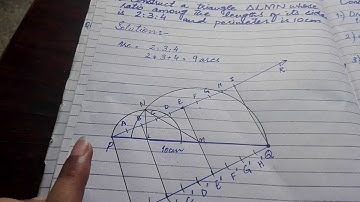 construct a triangle ΔLMN whose
ratio among the lengths of its sides
is 2:3:4 and perimeter is 10cm
Solution:-
2:3:4
2+3+4=9 arcs
R
I
H
G
F
E
N
D
C
B
A
P
L
M
10cm
Q
H'
G'
F'
E'
D'